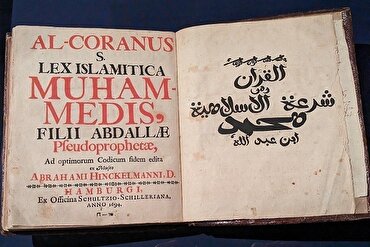 AL-CORANUS
S.
LEX ISLAMITICA
MUHAM-
MEDIS,
FILII ABDALLÆ
Pseudoprophetæ,
Ad optimorum Codicum fidem edita
ABRAHAMI HINCKELMANNI, D.
HAMBURGI,
Ex Officina SCHULTZIO-SCHILLERIANA,
ANNO 1694.
القرآن
وهو
شرعة الاسلامية
محمد
ابن عبد الله